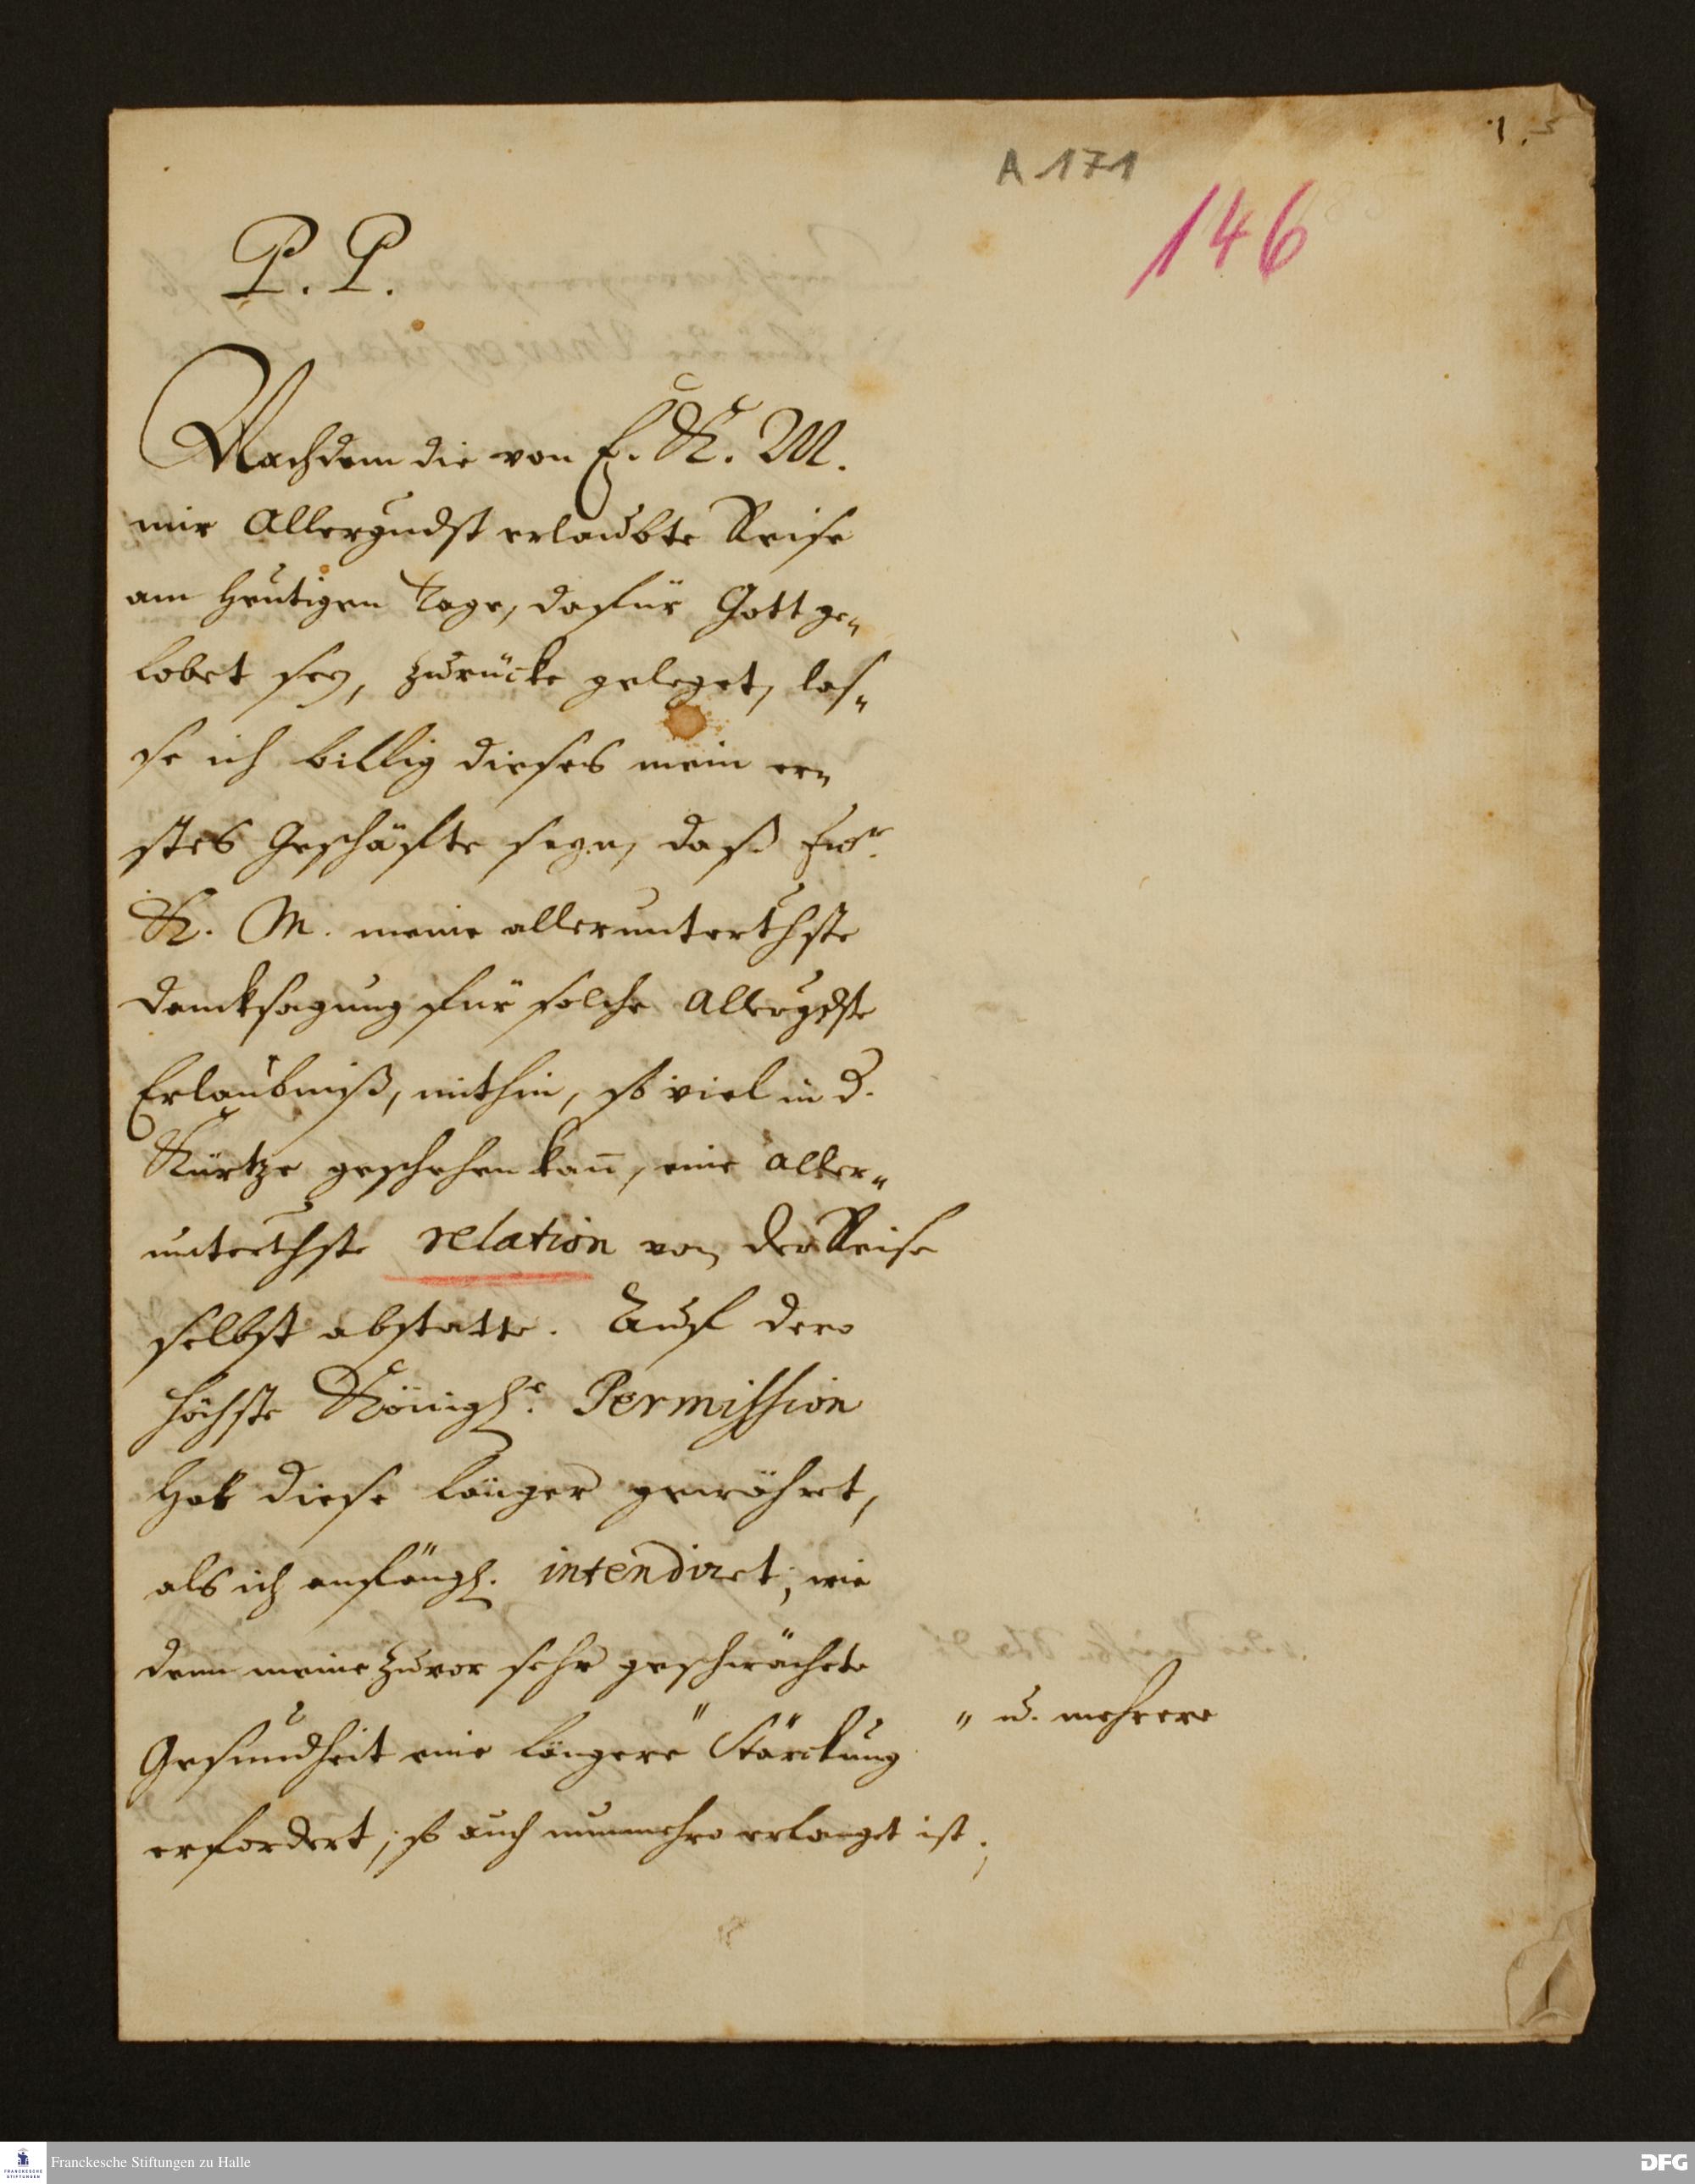 A 171
146
P. P.
Nachdem die von E. K. M.
mir Allergndst erlaubte Reise
am heutigen Tage, dafür Gott ge„
lobet sey, zurücke geleget, las„
se ich billig dieses mein er„
stes Geschäfte seyn, daß Ewr.
K. M. meine allerunterthste
Dancksagung für solche Allergdste
Erlaubniß, mithin, so viel in d.
Kürtze geschehen kan̄, eine aller„
unterthste relation von der Reise
selbst abstatte. Auf dero
höchste Königl. Permission
hat diese länger gewähret,
als ich anfängl. intendiret; wie
denn meine zuvor sehr geschwächete
Gesundheit eine längere " Stärckung
" u. mehrere
erfordert; so auch nunmehro erlanget ist;
Franckesche Stiftungen zu Halle
DFG